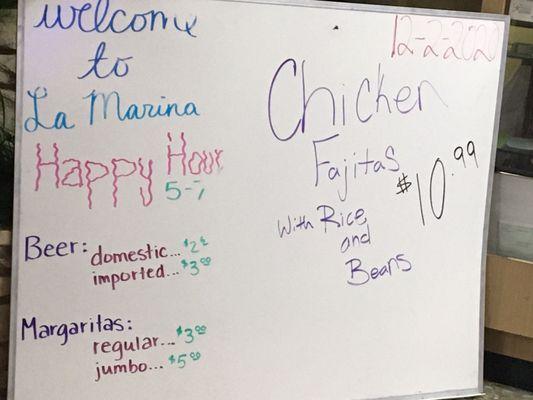 welcome
to
La Marina
Happy Hour
5-7
Beer:
domestic...
imported...$3.00
Margaritas:
regular...$3.00
jumbo...$5.00
12-2-2020
Chicken
Fajitas
$10.99
With Rice
and
Beans